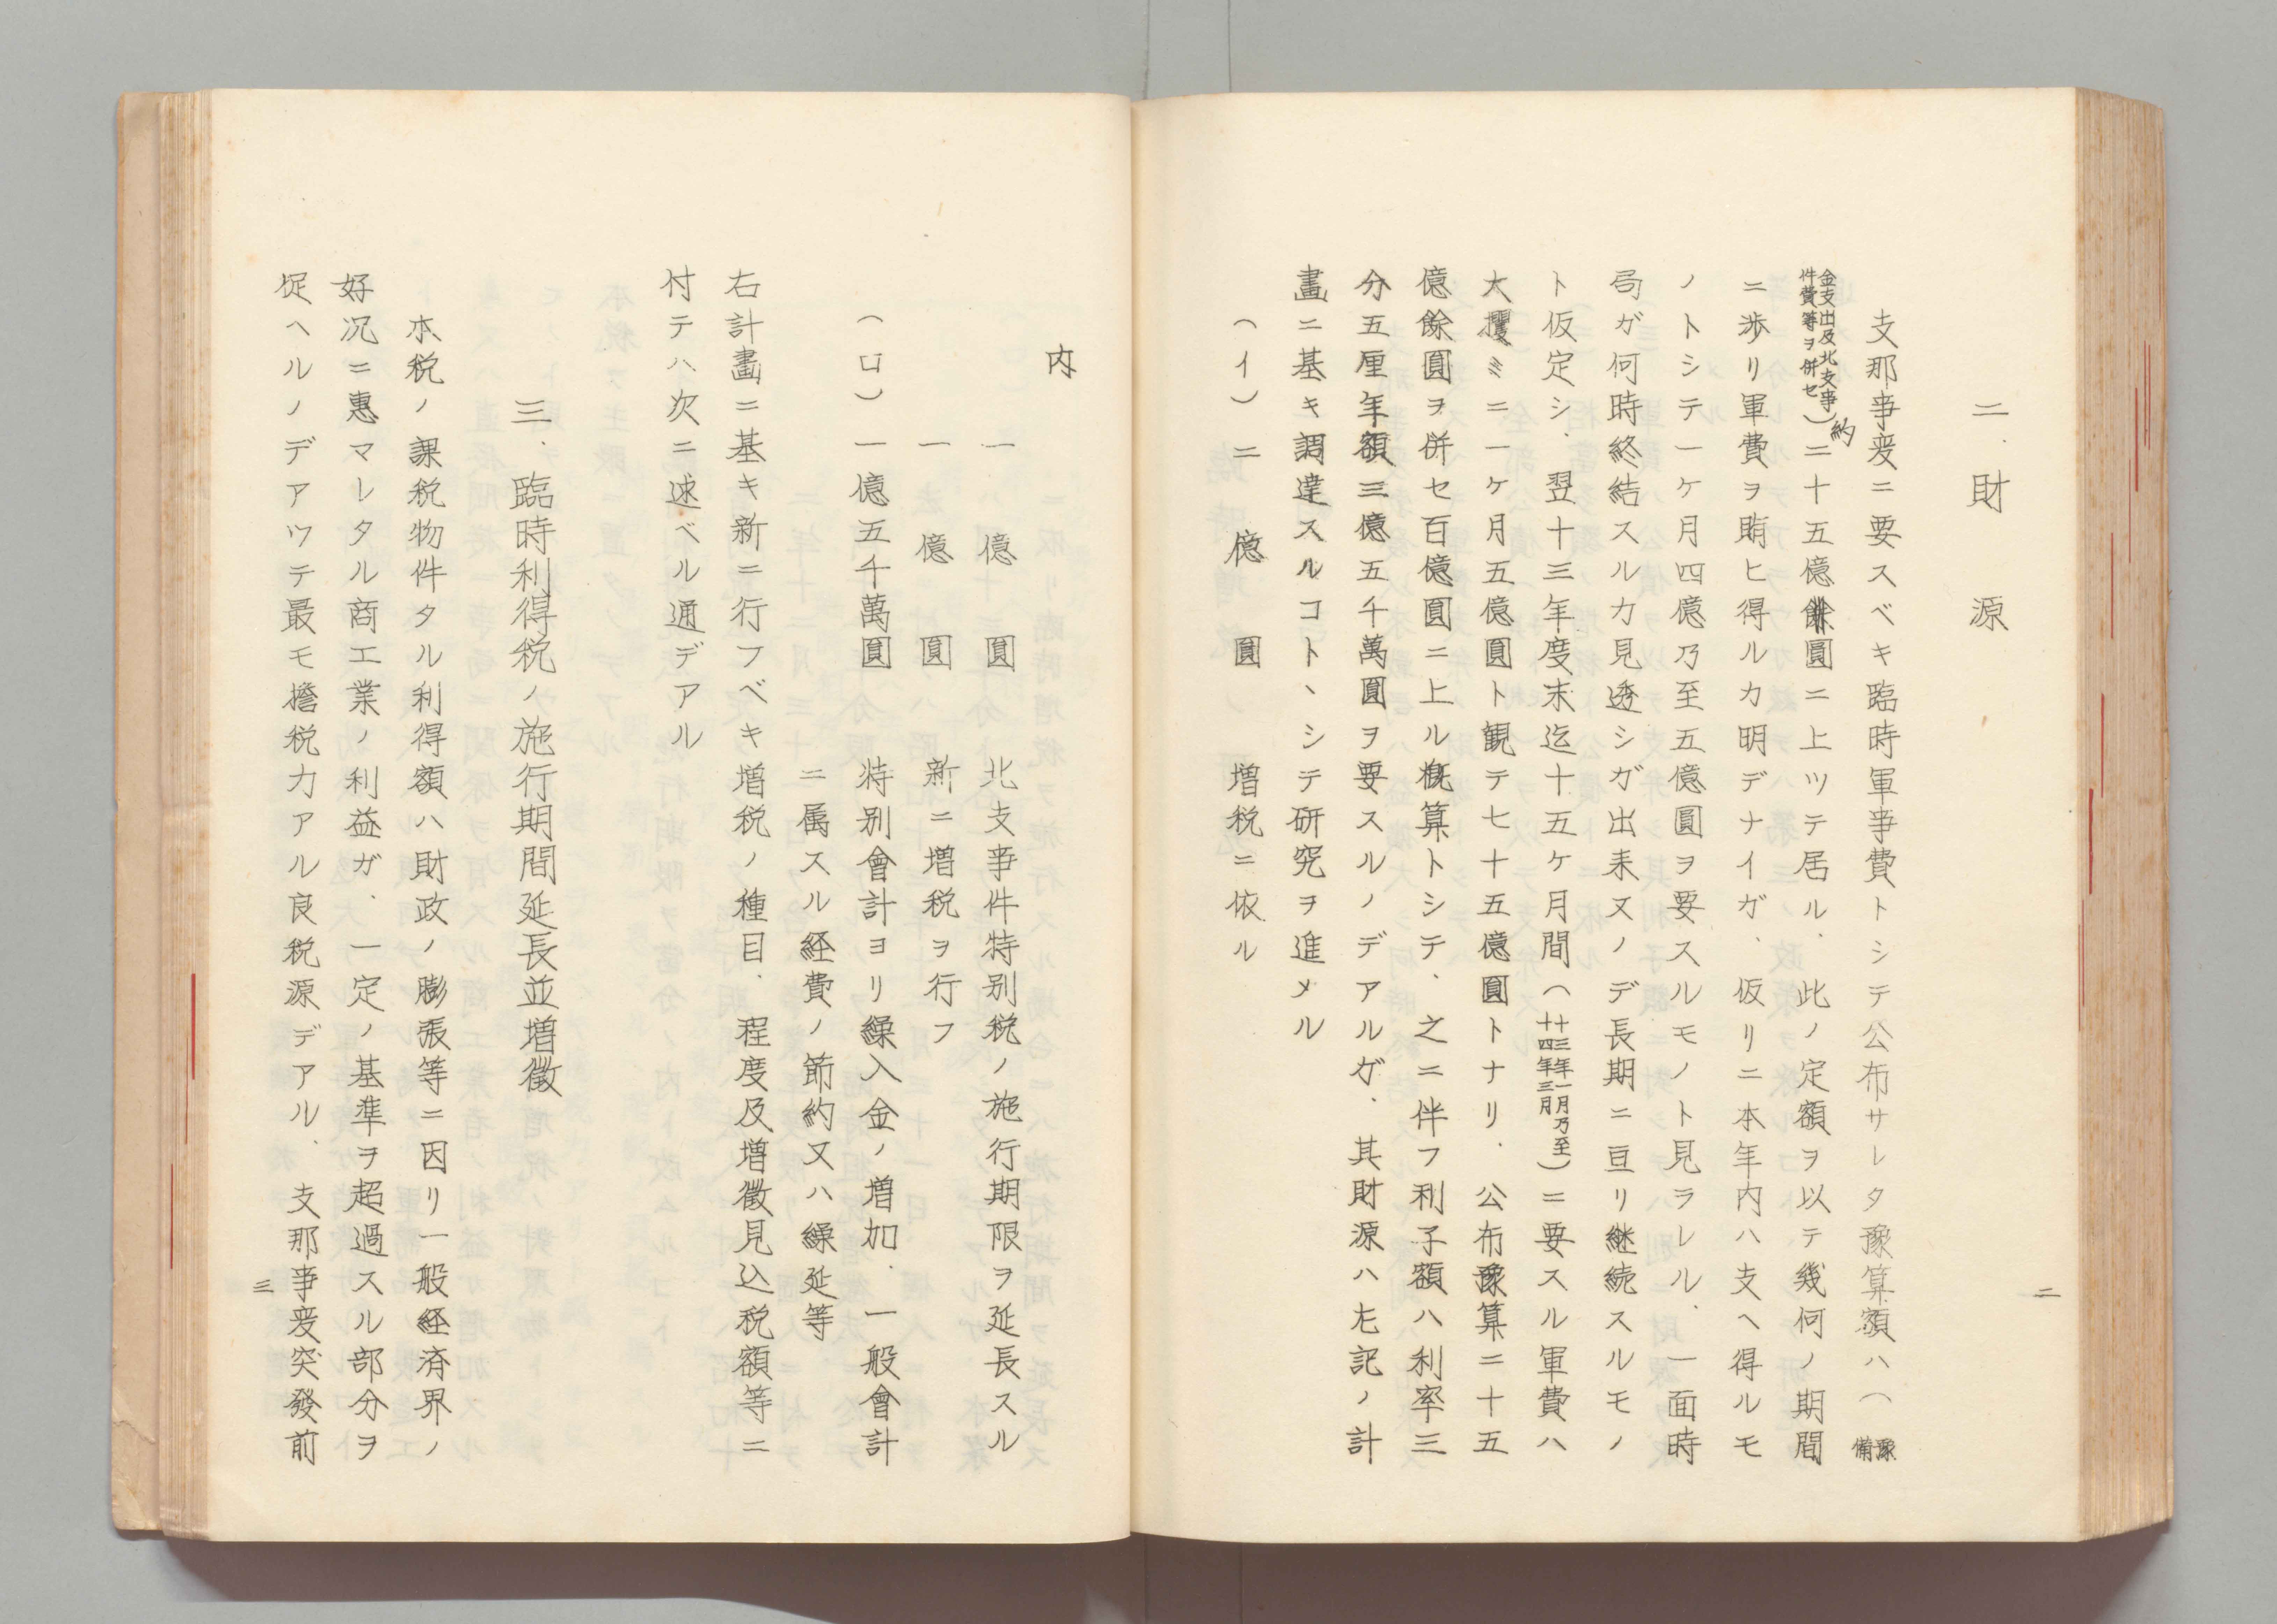 二
二、財源
支那事変ニ要スベキ臨時軍事費トシテ公布サレタ豫算額ハ（豫備
金支出及北支事件費等ヲ併セ）約二十五億餘圓ニ上ツテ居ル、此ノ定額ヲ以テ幾何ノ期間
ニ渉リ軍費ヲ賄ヒ得ルカ明デナイガ、仮リニ本年内ハ支ヘ得ルモ
ノトシテ一ケ月四億乃至五億圓ヲ要スルモノト見ラレル、一面時
局ガ何時終結スルカ見透シガ出来又ノデ長期ニ亘リ継続スルモノ
ト仮定シ、翌十三年度末迄十五ケ月間（十三年一月乃至十四年三月）ニ要スル軍費ハ
大攫ミニ一ケ月五億圓ト観テ七十五億圓トナリ、公布豫算二十五
億餘圓ヲ併セ百億圓ニ上ル概算トシテ、之ニ伴フ利子額ハ利率三
分五厘年額三億五千萬圓ヲ要スルノデアルガ、其財源ハ左記ノ計
畫ニ基キ調達スルコトヽシテ研究ヲ進メル
（イ）二億圓　増税ニ依ル
内
一億圓　北支事件特別税ノ施行期限ヲ延長スル
一億圓　新ニ増税ヲ行フ
（ロ）一億五千萬圓　特別會計ヨリ繰入金ノ増加、一般會計
ニ属スル経費ノ節約又ハ繰延等
右計畫ニ基キ新ニ行フベキ増税ノ種目、程度及増徴見込税額等ニ
付テハ次ニ述ベル通デアル
三、臨時利得税ノ施行期間延長並増徴
本税ノ課税物件タル利得額ハ財政ノ膨張等ニ因リ一般経済界ノ
好況ニ恵マレタル商工業ノ利益ガ、一定ノ基準ヲ超過スル部分ヲ
捉ヘルノデアツテ最モ擔税力アル良税源デアル、支那事変突發前
三